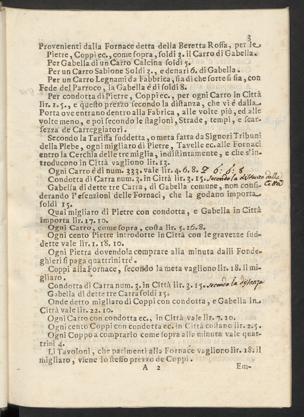 3
Provenienti dalla Fornace detta della Beretta Rossa, per le
Pietre, Coppi ec., come sopra, soldi 3. il Carro di Gabella.
Per Gabella di un Carro Calcina soldi 5.
Per un Carro Sabione Soldi 2., e denari 6. di Gabella.
Per un Carro Legnami da Fabbrica, sia di che sorte si sia, con
Fede del Parroco, la Gabella è di soldi 8.
Per condotta di Pietre, Coppi ec., per ogni Carro in Città
lir. 2. 5., e questo prezzo secondo la distanza, che vi è dalla
Porta ove entrano dentro alla Fabrica, alle volte più, ed alle
volte meno, e poi secondo le stagioni, Strade, tempi, e scar-
sezza de Carreggiatori.
Secondo la Tariffa suddetta, o meta fatta da Signori Tribuni
della Plebe, ogni migliaro di Pietre, Tavelle ec. alle Fornaci
entro la Cerchia delle tre miglia, indistintamente, e che s'in-
troducono in Città vagliono lir. 15.
Ogni Carro è di num. 333. vale lir. 4. 6. 8. 6: 6: 8
Condotta di Carra num. 3. in Città lir. 3. 15. secondo la distanza della
Città
Gabella di dette tre Carra, di Gabella comune, non consi-
derando l'esenzioni delle Fornaci, che la godano importa
soldi 15.
Qual migliaro di Pietre con condotta, e Gabella in Città
importa lir. 17. 10.
Ogni Carro, come sopra, costa lir. 5. 16. 8.
Ogni cento Pietre introdotte in Città con le gravezze sud-
dette vale lir. 1. 18. 10.
Ogni Pietra dovendola comprare alla minuta dalli Fonde-
ghieri si paga quattrini trè.
Coppi alla Fornace, secondo la meta vagliono lir. 18. il mi-
gliaro.
Condotta di Carra num. 3. in Città lir. 3. 15. secondo la distanza
Gabella di dette tre Carra soldi 15.
Onde detto migliaro di Coppi con condotta, e Gabella in
Città vale lir. 22. 10.
Ogni Carro con condotta ec., in Città vale lir. 7. 10.
Ogni cento Coppi con condotta ec. in Città costano lir. 2. 5.
Ogni Coppo a comprarlo come sopra alle minute vale quat-
trini 4.
Li Tavoloni, che parimenti alla Fornace vagliono lir. 18. il
migliaro, viene lo stesso prezzo de Coppi.
A 2 Em-